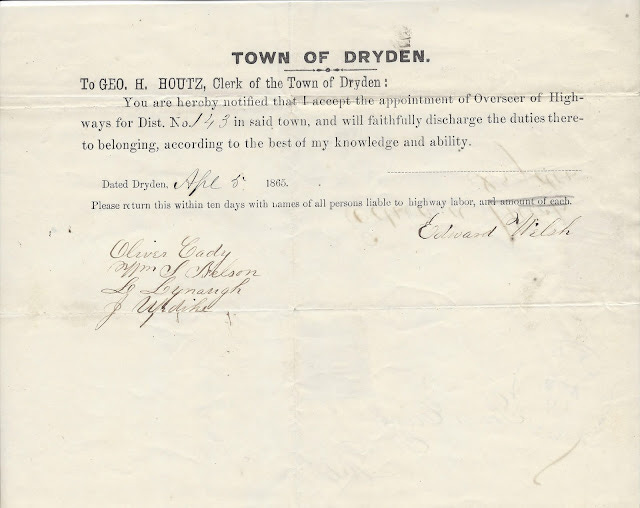 TOWN OF DRYDEN.
To GEO. H. HOUTZ, Clerk of the Town of Dryden:
You are hereby notified that I accept the appointment of Overseer of High-
ways for Dist. No. 143 in said town, and will faithfully discharge the duties there-
to belonging, according to the best of my knowledge and ability.
Dated Dryden, Apl 5 1865.
Please return this within ten days with names of all persons liable to highway labor, and amount of each.
Edward Welsh
Oliver Cady
Wm S Nelson
L Lynaugh
J Updike